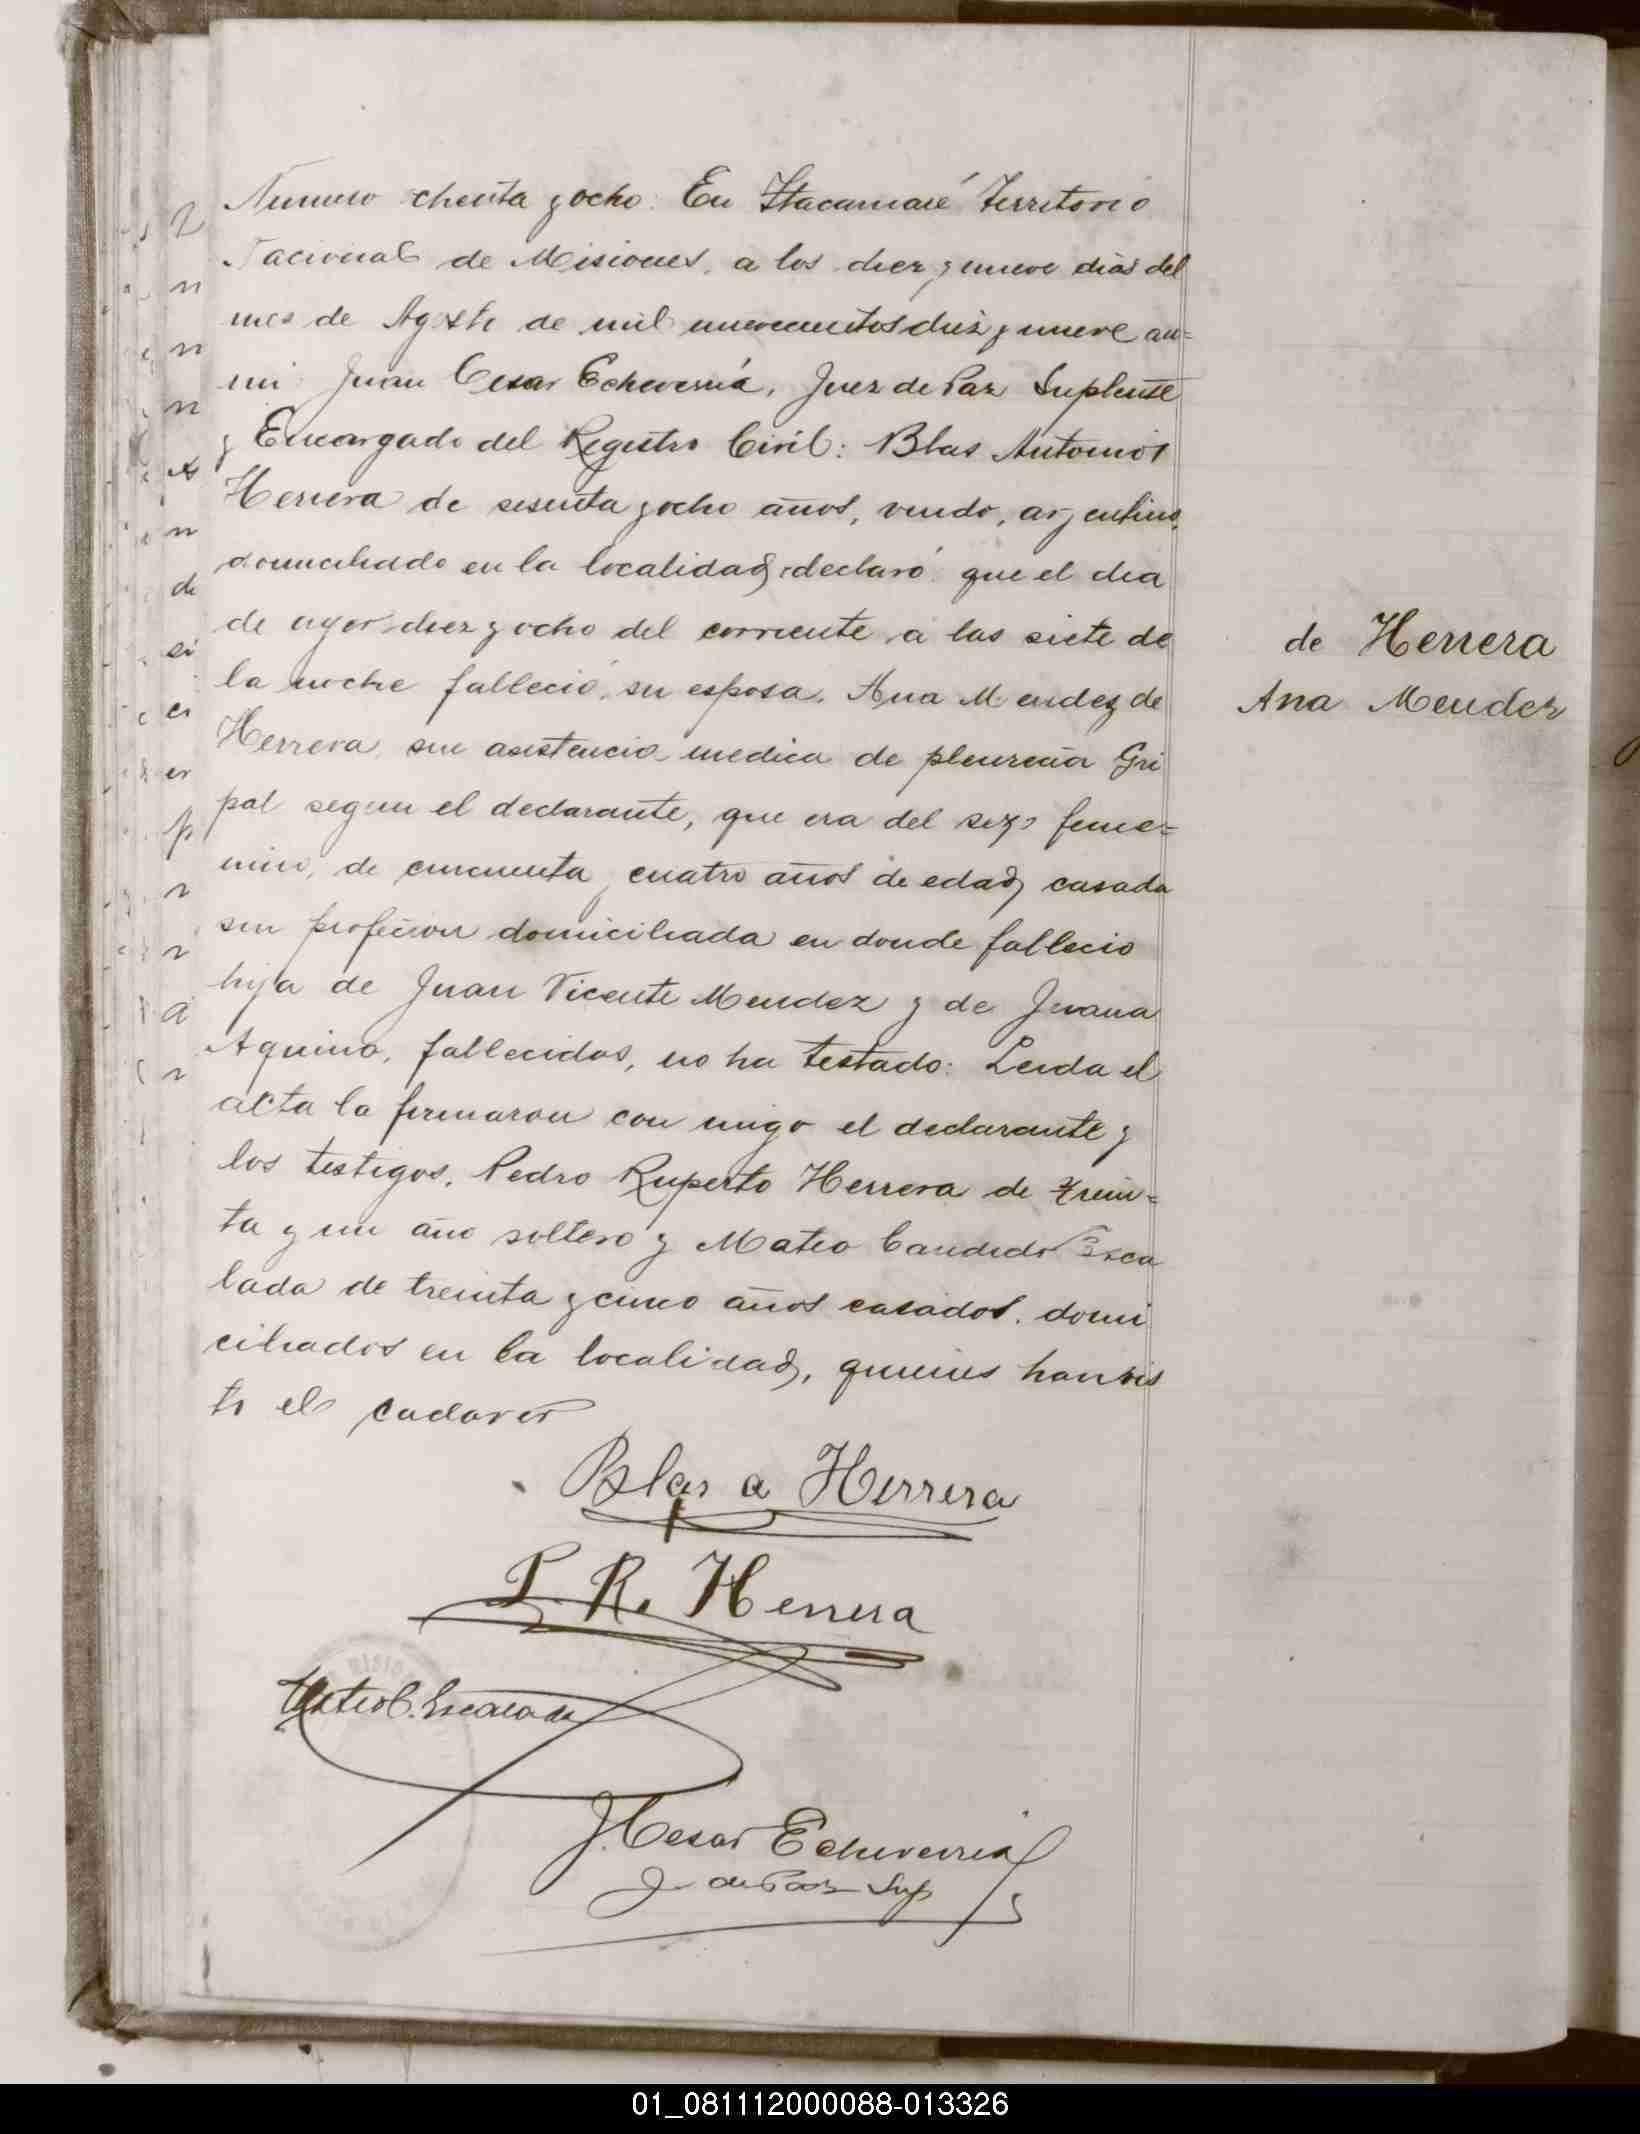 Numero ochenta y ocho: En Itacaruaré Territorio
Nacional de Misiones, a los diez y nueve dias del
mes de Agosto de mil nuevecientos diez y nueve an=
mi Juan Cesar Echeverría, Juez de Paz Suplente
y Encargado del Registro Civil: Blas Antonio
Herrera de sesenta y ocho años, viudo, argentino,
domiciliado en la localidad, declaró: que el dia
de ayer diez y ocho del corriente a las siete de
la noche falleció, su esposa, Ana Mendez de
Herrera, sin asistencia medica de pleuresia Gri
pal segun el declarante, que era del sexo feme=
nino, de cincuenta y cuatro años de edad, casada
sin profecion domiciliada en donde fallecio
hija de Juan Vicente Mendez y de Juana
Aquino, fallecidos, no ha testado: Leida el
acta la firmaron con migo el declarante y
los testigos, Pedro Ruperto Herrera de trein=
ta y un año soltero y Mateo Candido Esca
lada de treinta y cinco años casados, domi
ciliados en la localidad, quienes han vis
to el cadaver
de Herrera
Ana Mendez
Blas a Herrera
P. R. Herrera
Mateo C. Escalada
J. Cesar Echeverria
J. de Paz Sup
01_081112000088-013326